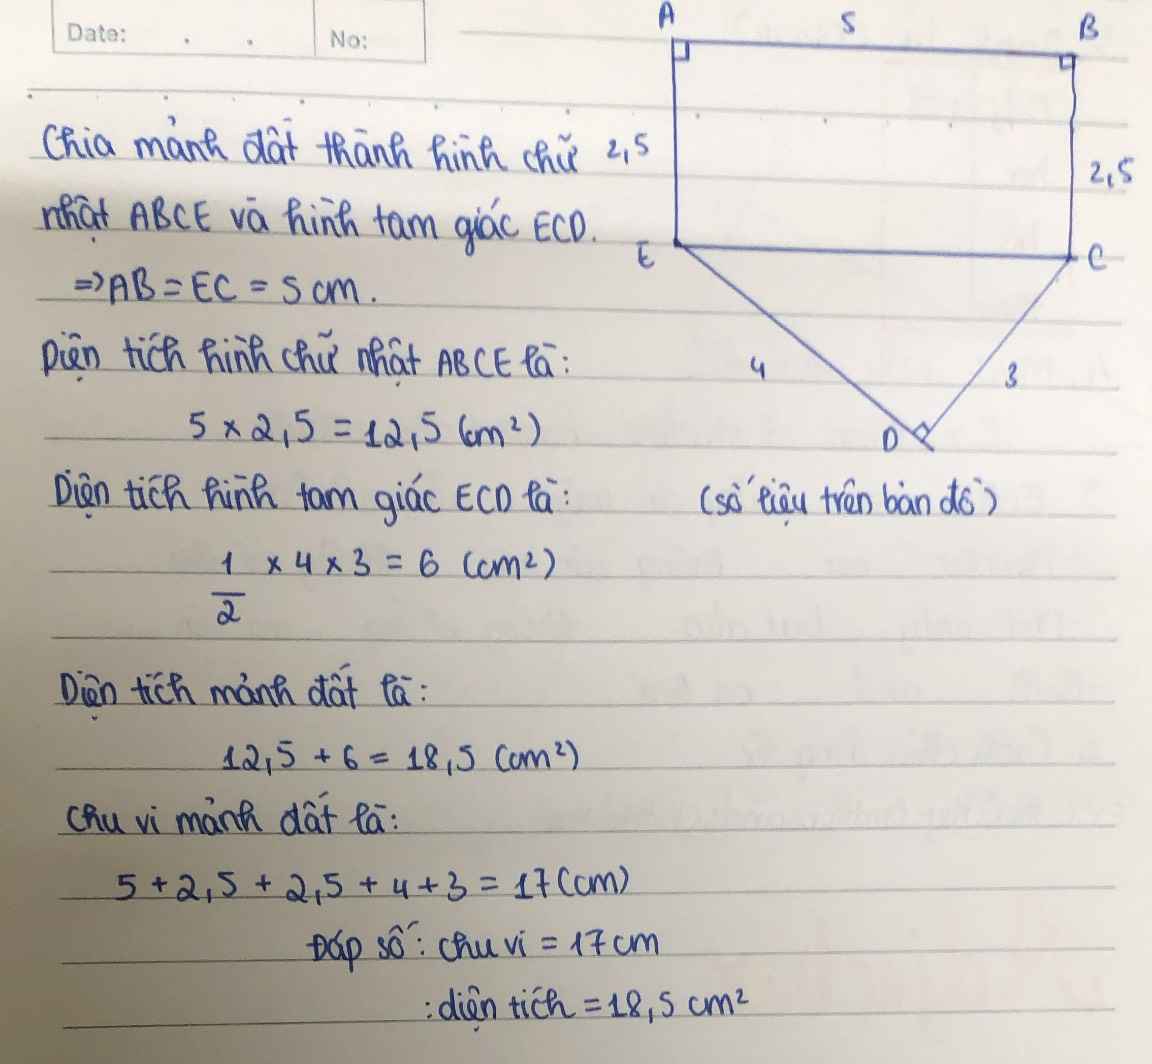 Date: . .
No:
A 5 B
Chia mảnh đất thành hình chữ
2,5
2,5
nhật ABCE và hình tam giác ECD.
E
C
=> AB = EC = 5 cm.
Diện tích hình chữ nhật ABCE là:
4
3
5 × 2,5 = 12,5 (cm²)
D
Diện tích hình tam giác ECD là:
(số liệu trên bản đồ)
1/2 × 4 × 3 = 6 (cm²)
Diện tích mảnh đất là:
12,5 + 6 = 18,5 (cm²)
Chu vi mảnh đất là:
5 + 2,5 + 2,5 + 4 + 3 = 17 (cm)
Đáp số: chu vi = 17 cm
: diện tích = 18,5 cm²